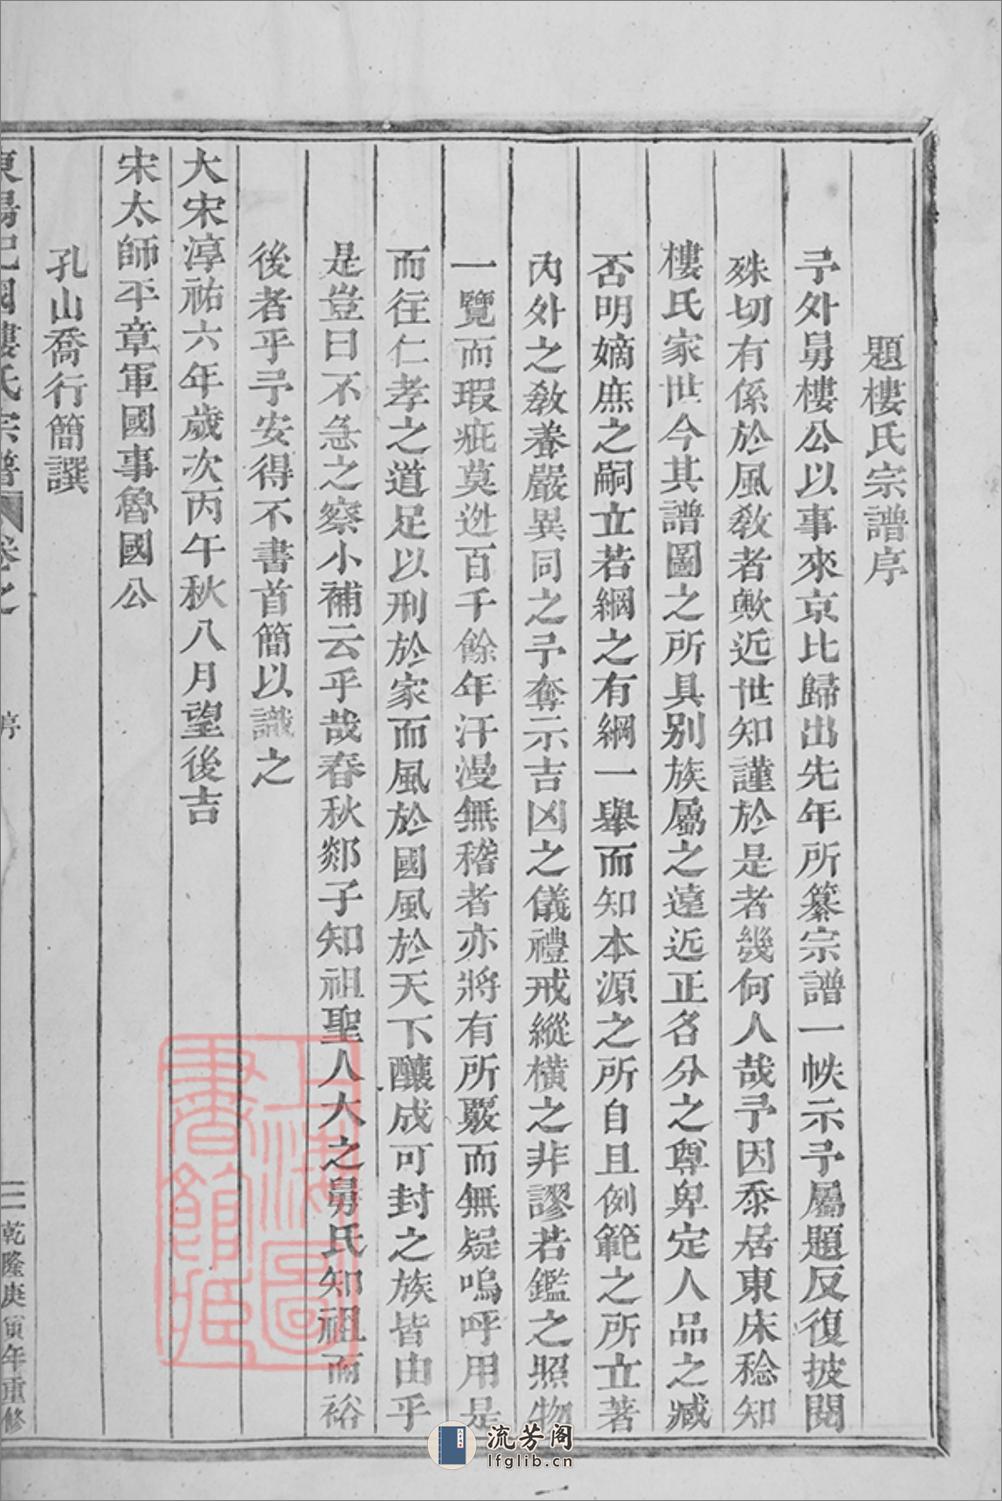 題樓氏宗譜序
予外舅樓公以事來京比歸出先年所纂宗譜一帙示予屬題反復披閱
殊切有係於風敎者歟近世知謹於是者幾何人哉予因忝居東床稔知
樓氏家世今其譜圖之所具别族屬之遠近正名分之尊卑定人品之臧
否明嫡庶之嗣立若綱之有綱一舉而知本源之所自且例範之所立著
內外之敎養嚴異同之予奪示吉凶之儀禮戒縱橫之非謬若鑑之照物
一覽而瑕疵莫迯百千餘年汗漫無稽者亦將有所覈而無疑嗚呼用是
而往仁孝之道足以刑於家而風於國風於天下釀成可封之族皆由乎
是豈曰不急之察小補云乎哉春秋郯子知祖聖人大之舅氏知祖而裕
後者乎予安得不書首簡以識之
大宋淳祐六年歲次丙午秋八月望後吉
宋太師平章軍國事魯國公
孔山喬行簡譔
東陽巳國樓氏宗譜 卷之 序 二 乾隆庚寅年重修
上海圖書館藏
流芳阁
lfglib.cn